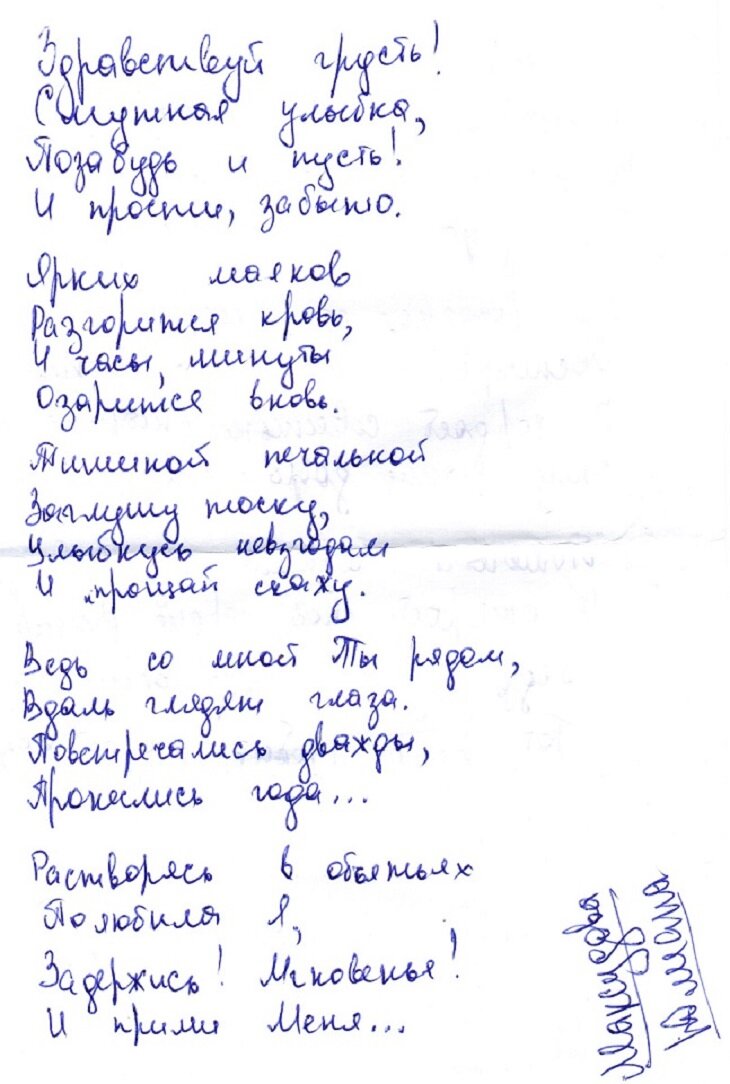 Здравствуй грусть!
Смутная улыбка,
Позабудь и пусть!
И прости, забыто.
Ярких маяков
Разгорится кровь,
И часы, минуты
Озарится вновь.
Тишиной печальной
Заглушу тоску,
Улыбнусь невзгодам
И "прощай скажу.
Ведь со мной Ты рядом,
Вдаль глядят глаза.
Повстречались дважды,
Пронеслись года...
Растворясь в объятьях
Полюбила Я,
Задержись! Мгновенье!
И прими Меня...